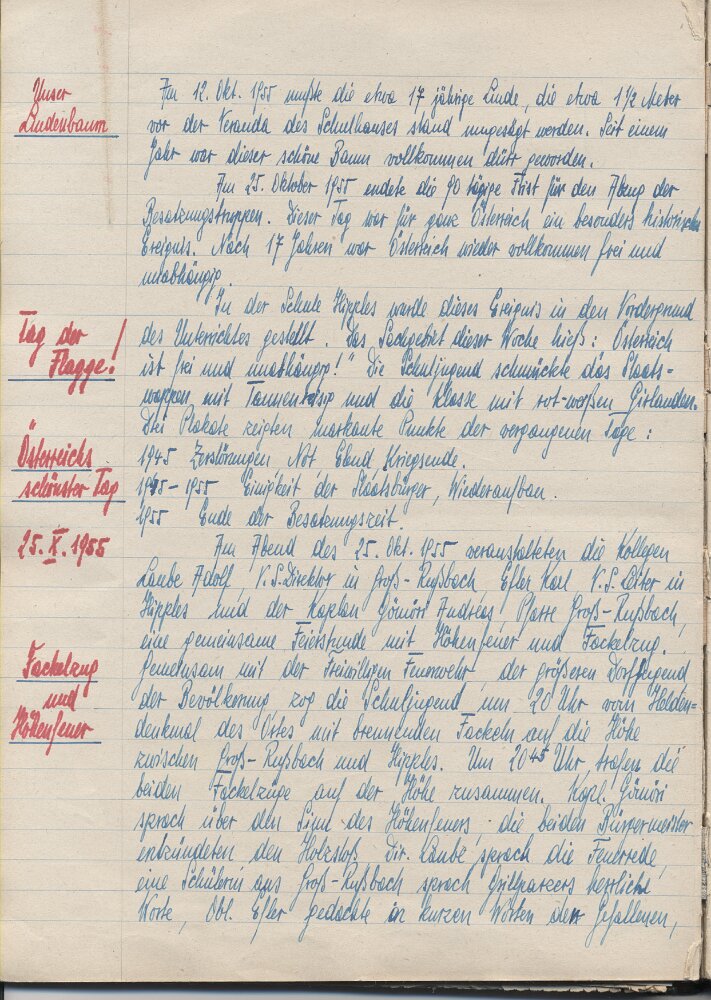 Unser
Lindenbaum
Am 12. Okt. 1955 mußte die etwa 17 jährige Linde, die etwa 1½ Meter
vor der Veranda des Schulhauses stand umgesägt werden. Seit einem
Jahr war dieser schöne Baum vollkommen dürr geworden.
Am 25. Oktober 1955 endete die 90 tägige Frist für den Abzug der
Besatzungstruppen. Dieser Tag war für ganz Österreich ein besonders historisches
Ereignis. Nach 17 Jahren war Österreich wieder vollkommen frei und
unabhängig.
Tag der
Flagge!
In der Schule Hipples wurde dieses Ereignis in den Vordergrund
des Unterrichtes gestellt. Das Sachgebiet dieser Woche hieß: Österreich
ist frei und unabhängig!" Die Schuljugend schmückte das Staats-
wappen mit Tannenreisig und die Klasse mit rot-weißen Girlanden.
Drei Plakate zeigten markante Punkte der vergangenen Tage:
Österreichs
schönster Tag
1945 Zerstörungen, Not, Elend, Kriegsende.
1945-1955 Einigkeit der Staatsbürger, Wiederaufbau.
1955 Ende der Besatzungszeit.
25. X. 1955
Am Abend des 25. Okt. 1955 veranstalteten die Kollegen
Laube Adolf, V.S.Direktor in Groß-Rußbach, Efler Karl V.S.Leiter in
Hipples und der Kaplan Gömöri Andreas, Pfarre Groß-Rußbach,
eine gemeinsame Feierstunde mit Höhenfeuer und Fackelzug.
Fackelzug
und
Höhenfeuer
Gemeinsam mit der Freiwilligen Feuerwehr, der größeren Dorfjugend
der Bevölkerung zog die Schuljugend um 20 Uhr vom Helden-
denkmal des Ortes mit brennenden Fackeln auf die Höhe
zwischen Groß-Rußbach und Hipples. Um 20⁴⁵ Uhr trafen die
beiden Fackelzüge auf der Höhe zusammen. Kapl. Gömöri
sprach über den Sinn des Höhenfeuers, die beiden Bürgermeister
entzündeten den Holzstoß. Dir. Laube sprach die Feuerrede,
eine Schülerin aus Groß-Rußbach sprach Grillparzers herrliche
Worte, Obl. Efler gedachte in kurzen Worten der Gefallenen,